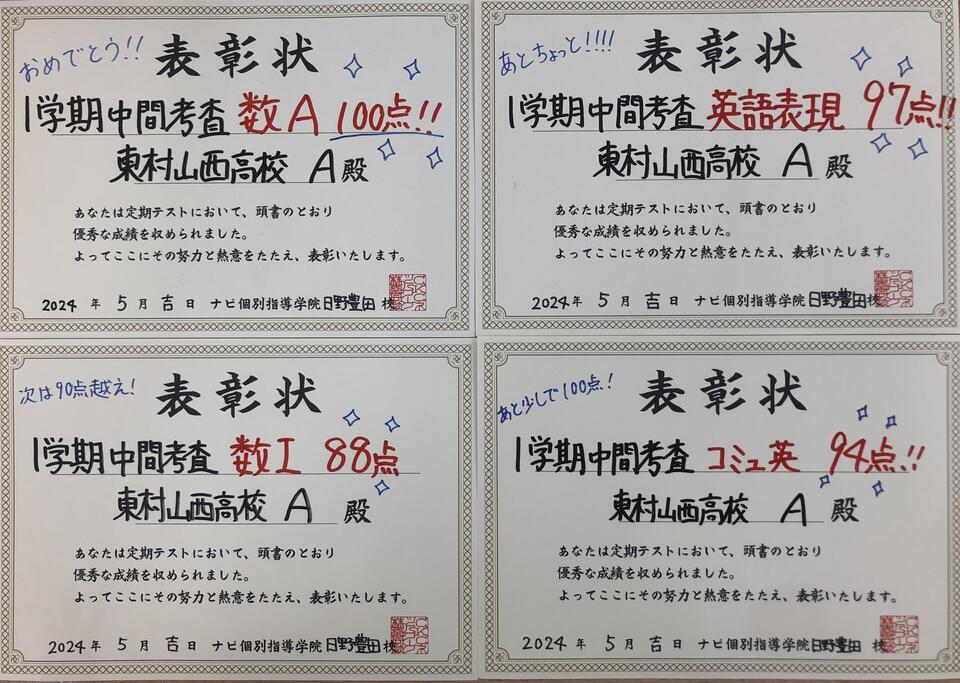 おめでとう!!
表彰状
1学期中間考査 数A 100点!!
東村山西高校 A 殿
あなたは定期テストにおいて、頭書のとおり
優秀な成績を収められました。
よってここにその努力と熱意をたたえ、表彰いたします。
2024 年 5 月 吉 日 ナビ個別指導学院 日野豊田 校
あとちょっと!!!!
表彰状
1学期中間考査 英語表現 97点!!
東村山西高校 A 殿
あなたは定期テストにおいて、頭書のとおり
優秀な成績を収められました。
よってここにその努力と熱意をたたえ、表彰いたします。
2024 年 5 月 吉 日 ナビ個別指導学院 日野豊田 校
次は90点越え!
表彰状
1学期中間考査 数I 88点
東村山西高校 A 殿
あなたは定期テストにおいて、頭書のとおり
優秀な成績を収められました。
よってここにその努力と熱意をたたえ、表彰いたします。
2024 年 5 月 吉 日 ナビ個別指導学院 日野豊田 校
あと少しで100点!
表彰状
1学期中間考査 コミュ英 94点!!
東村山西高校 A 殿
あなたは定期テストにおいて、頭書のとおり
優秀な成績を収められました。
よってここにその努力と熱意をたたえ、表彰いたします。
2024 年 5 月 吉 日 ナビ個別指導学院 日野豊田 校